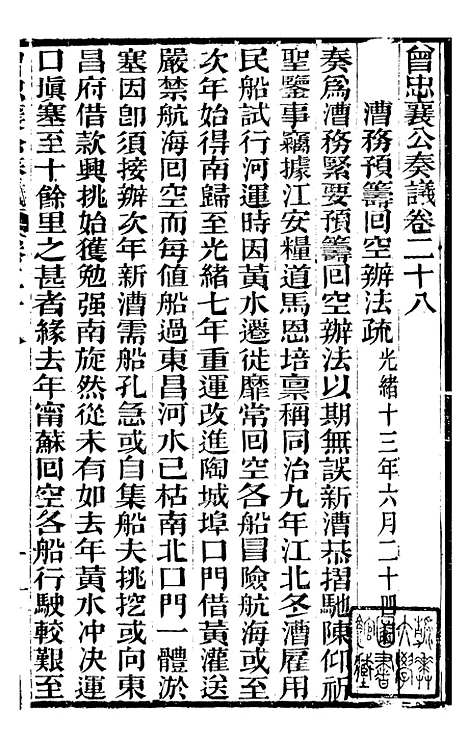 曾忠襄公奏議卷二十八
漕務預籌回空辦法疏 光緒十三年六月二十四
奏爲漕務緊要預籌回空辦法以期無誤新漕恭摺馳陳仰祈
聖鑒事竊據江安糧道馬恩培稟稱同治九年江北冬漕雇用
民船試行河運時因黃水遷徙靡常回空各船冒險航海或至
次年始得南歸至光緒七年重運改進陶城埠口門借黃灌送
嚴禁航海回空而每値船過東昌河水已枯南北口門一體淤
塞因卽須接辦次年新漕需船孔急或自集船夫挑挖或向東
昌府借款興挑始獲勉强南旋然從未有如去年黃水冲決運
口塡塞至十餘里之甚者緣去年甯蘇回空各船行駛較艱至